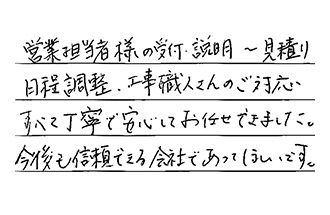 営業担当者様の受付.説明～見積り
日程調整.工事職人さんのご対応
すべて丁寧で安心してお任せできました。
今後も信頼できる会社であってほしいです。